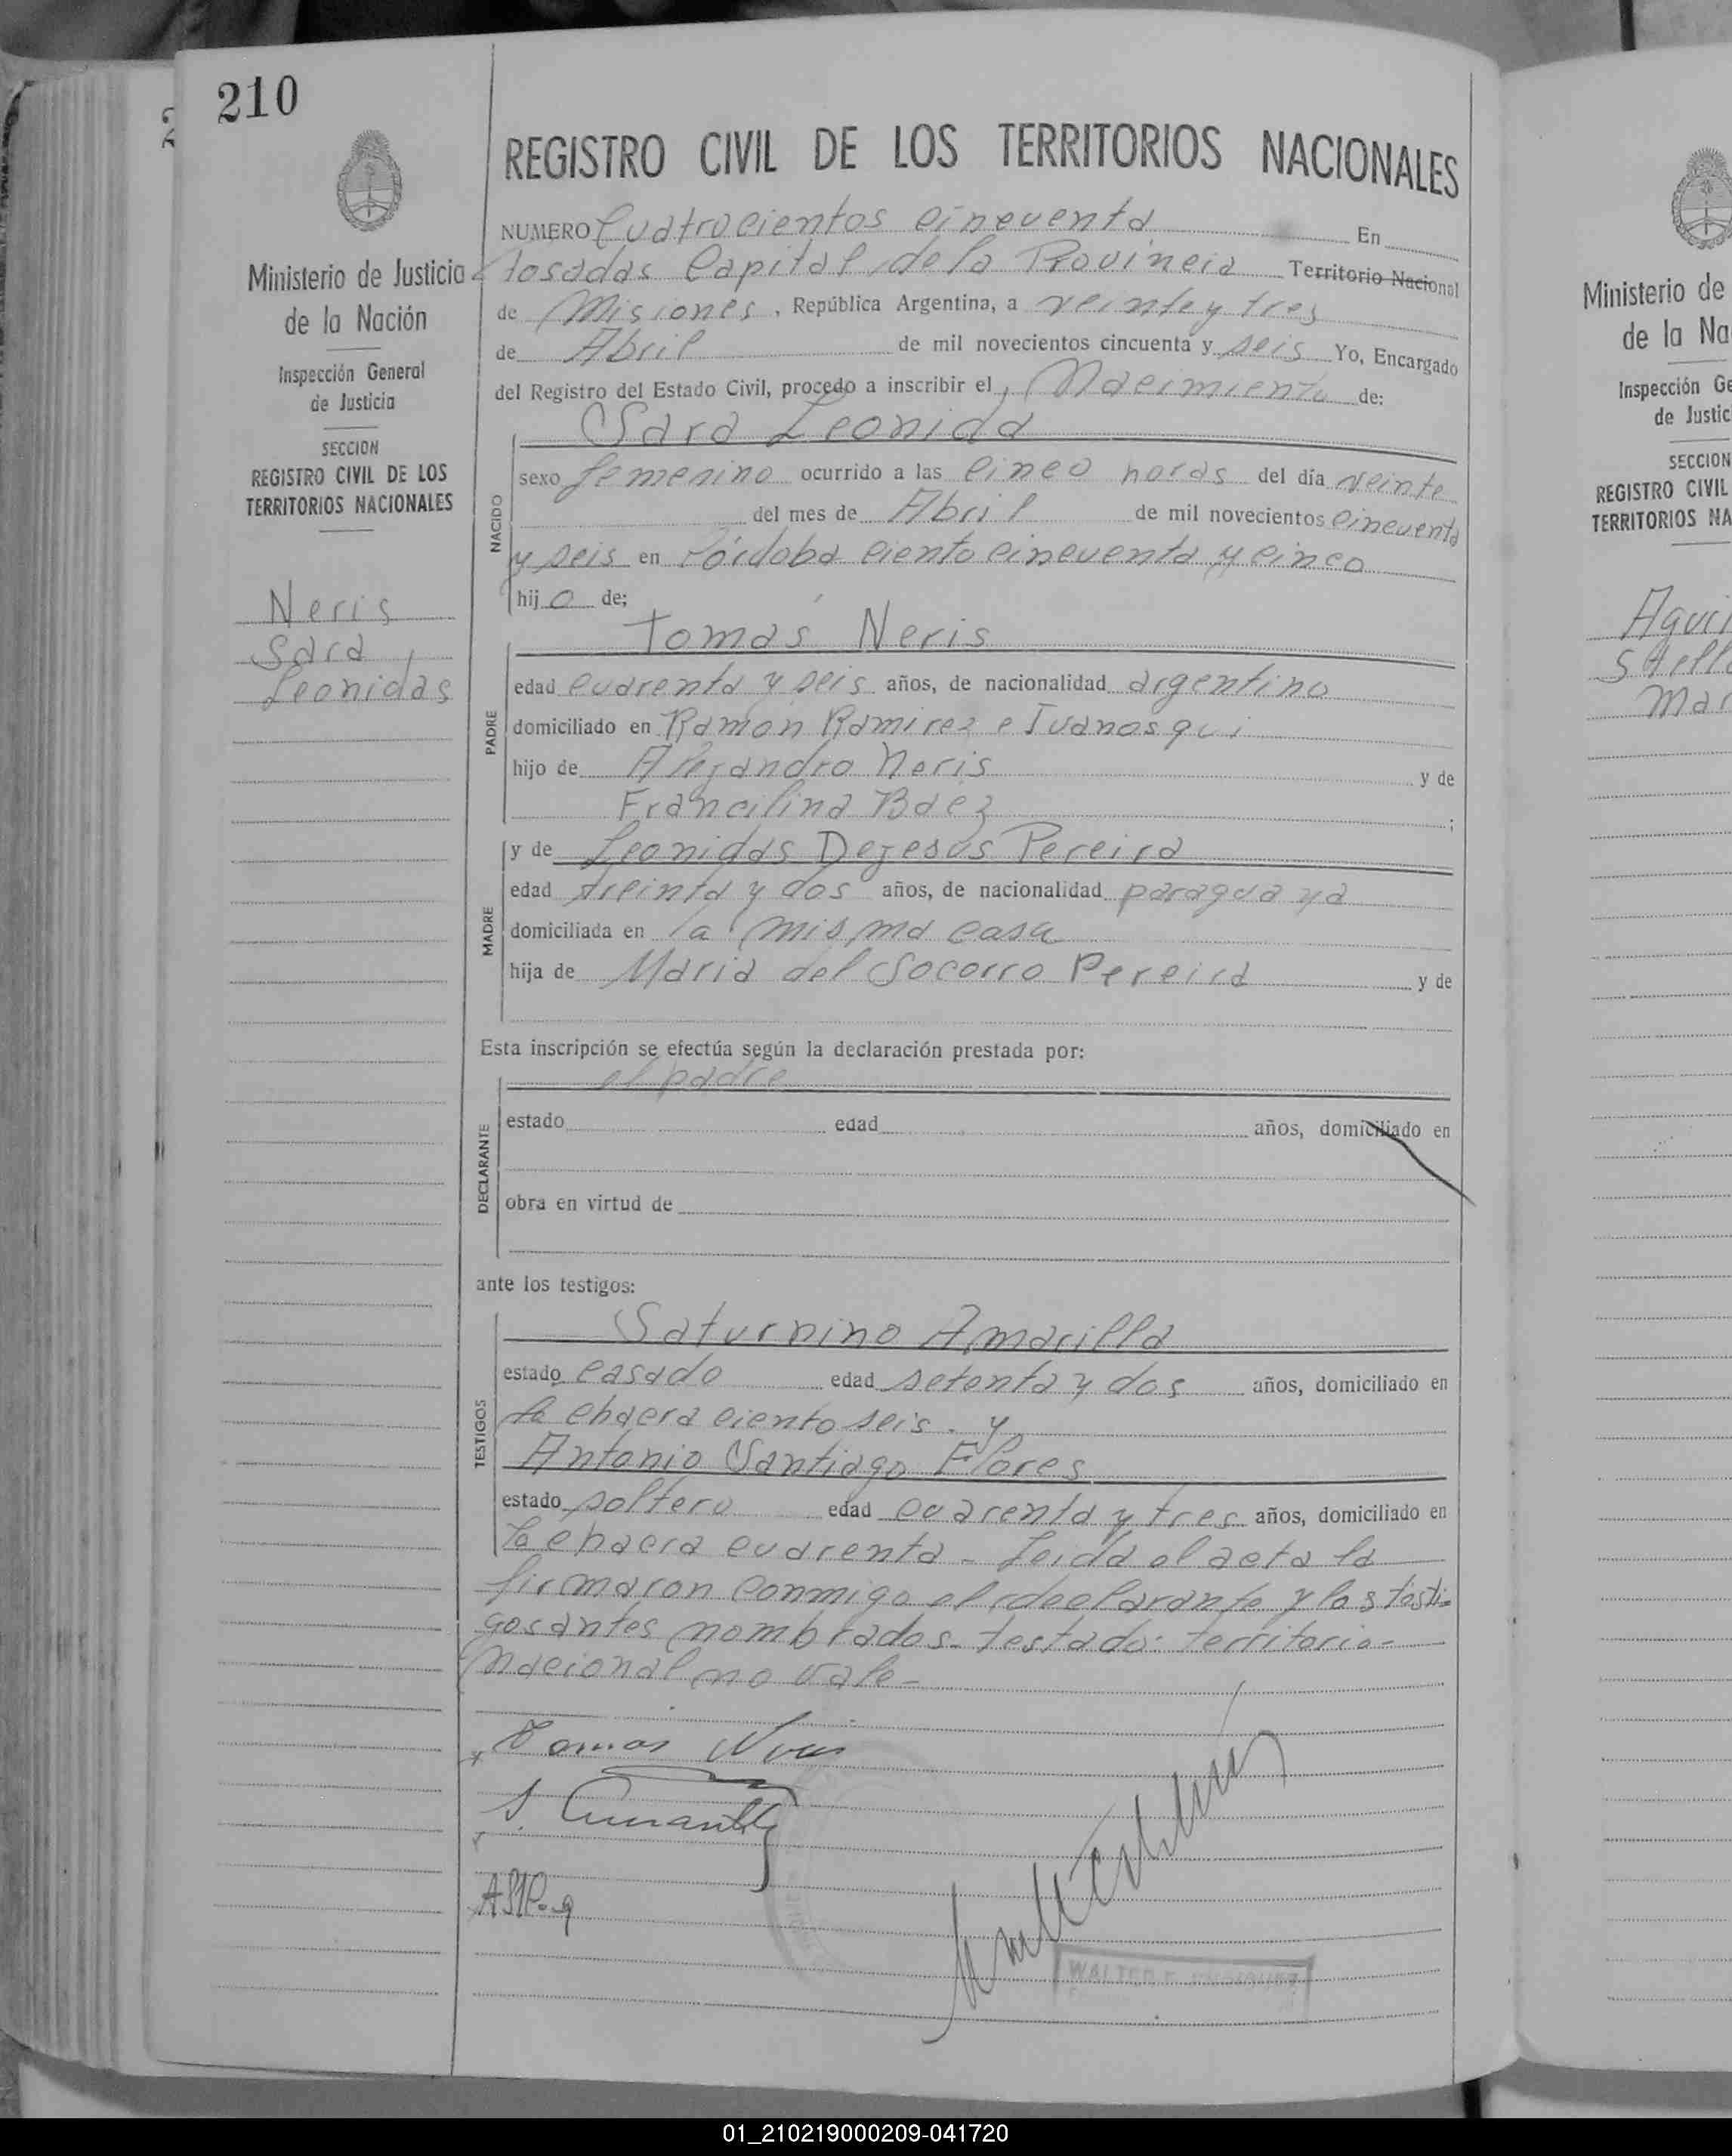 210
REGISTRO CIVIL DE LOS TERRITORIOS NACIONALES
Ministerio de Justicia
de la Nación
Inspección General
de Justicia
SECCION
REGISTRO CIVIL DE LOS
TERRITORIOS NACIONALES
Neris
Sara
Leonidas
NUMERO Cuatrocientos cincuenta En
Posadas Capital de la Provincia Territorio Nacional
de Misiones, República Argentina, a veinte y tres
de Abril de mil novecientos cincuenta y seis Yo, Encargado
del Registro del Estado Civil, procedo a inscribir el Nacimiento de:
Sara Leonida
NACIDO
sexo femenino ocurrido a las cinco horas del día veinte
del mes de Abril de mil novecientos cincuenta
y seis en Córdoba ciento cincuenta y cinco
hij o de;
PADRE
Tomás Neris
edad cuarenta y seis años, de nacionalidad argentino
domiciliado en Ramón Ramirez e Ivanosqui
hijo de Alejandro Neris y de
Francilina Baez ;
MADRE
y de Leonidas Dejesús Pereira
edad treinta y dos años, de nacionalidad paraguaya
domiciliada en la misma casa
hija de Maria del Socorro Pereira y de
Esta inscripción se efectúa según la declaración prestada por:
DECLARANTE
el padre
estado edad años, domiciliado en
obra en virtud de
ante los testigos:
TESTIGOS
Saturnino Amarilla
estado casado edad setenta y dos años, domiciliado en
la chacra ciento seis. y
Antonio Santiago Flores
estado soltero edad cuarenta y tres años, domiciliado en
la chacra cuarenta - Leida el acta la
firmaron conmigo el declarante y los testi-
gos antes nombrados - testado: territorio -
nacional no vale -
Tomas Neris
S. Amarilla
WALTER
Ministerio de
de la Na
Inspección Ge
de Justic
SECCION
REGISTRO CIVIL
TERRITORIOS NA
Agui
Stella
Mar
01_210219000209-041720